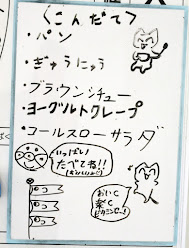 〈こんだて〉
・パン
・ぎゅうにゅう
・ブラウンシチュー
・ヨーグルトクレープ
・コールスローサラダ
いっぱい
たべてね!!
おいしく
楽しく